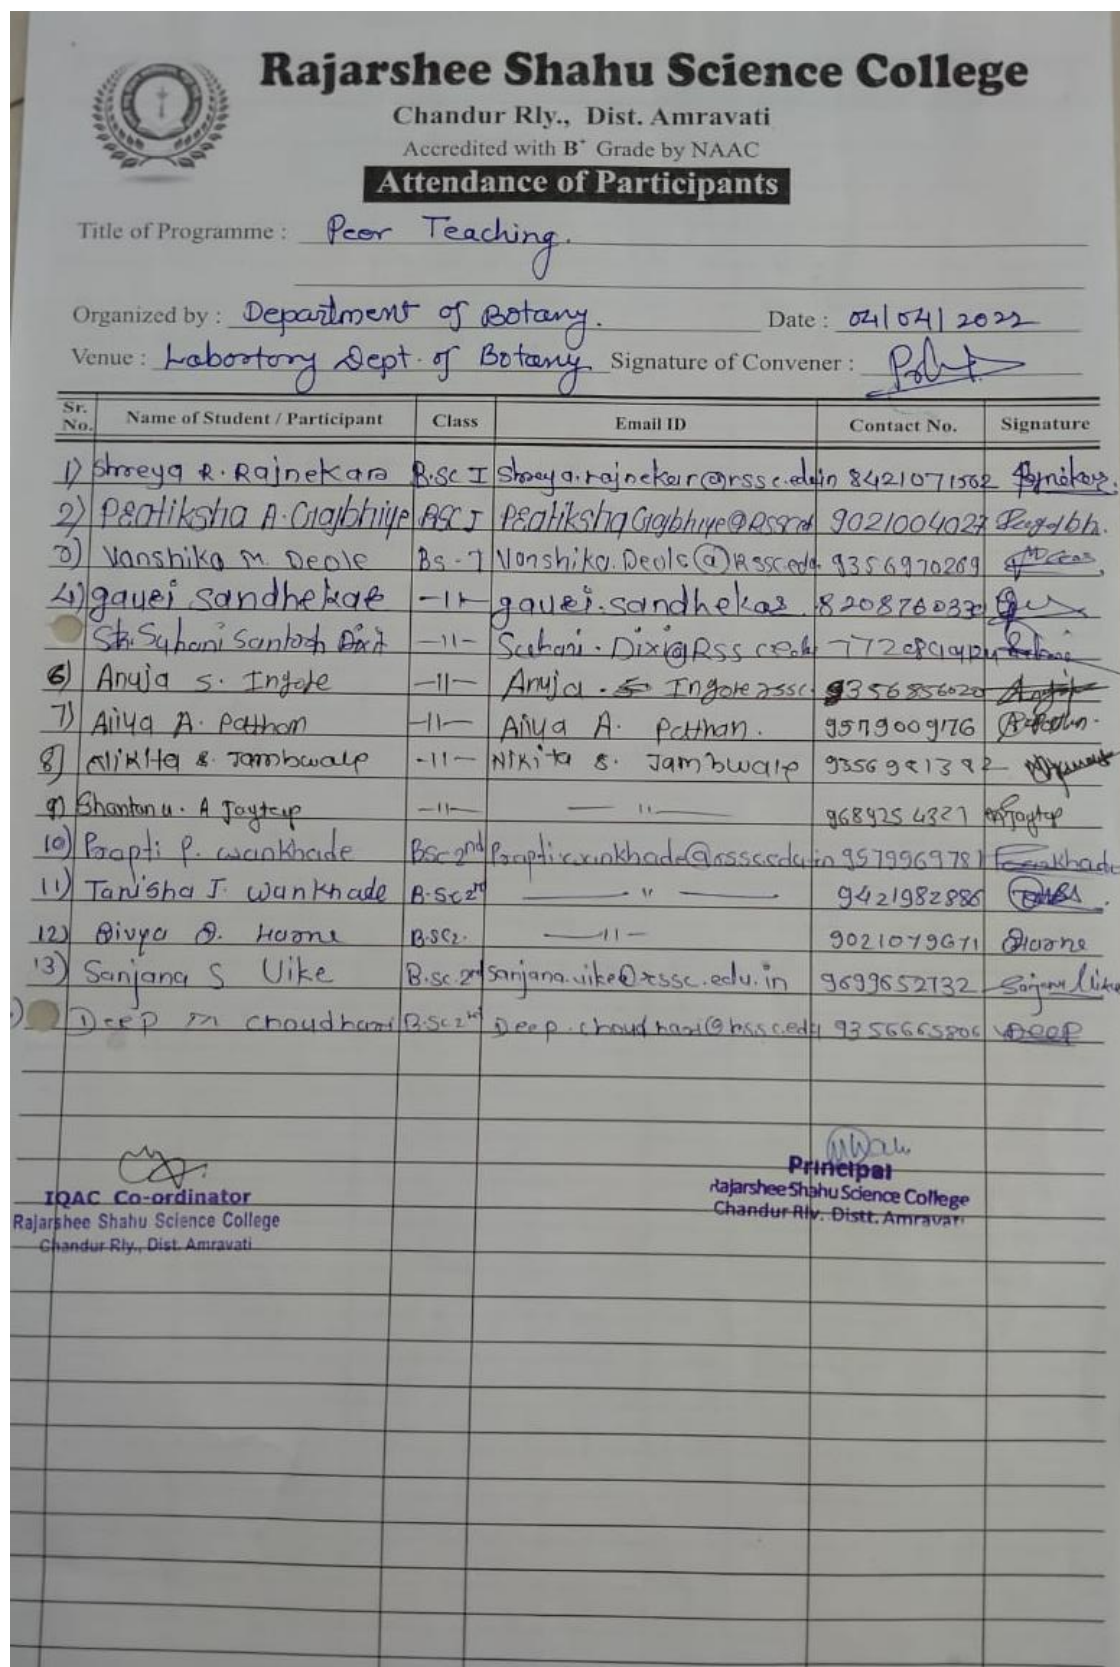 Rajarshee Shahu Science College
Chandur Rly., Dist. Amravati
Accredited with B+ Grade by NAAC
Attendance of Participants
Title of Programme : Peer Teaching.
Organized by : Department of Botany. Date : 04/04/2022
Venue : Labortory Dept. of Botany Signature of Convener :
Sr. No. Name of Student / Participant Class Email ID Contact No. Signature
1) Shreya R. Rajnekar B.Sc I Shreya.rajnekar@rssc.edu.in 8421071562
2) Pratiksha A. Gajbhiye BSC I Pratiksha Gajbhiye@Rssc 9021004027
3) Vanshika M. Deole Bs - I Vanshika.Deole@Rssc.edu 9356970269
4) gauri sandhekar -11- gauri.sandhekar 820876037
Suhani Santosh Dixit -11- Suhani.Dixi@Rssc
6) Anuja S. Ingole -11- Anuja. Ingole rssc 9356856020
7) Aliya A. Patthan -11- Aliya A. Patthan. 957900976
8) Nikita S. Jambwalp -11- Nikita S. Jambwalp 9356981392
9) Shantanu. A Jaytap -11- -11- 968925 4327 Jaytap
10) Prapti P. wankhade BSc 2nd Prapti.wankhade@rssc.edu.in 9579969781 wankhade
11) Tanisha J. Wankhade B.Sc 2nd -11- 9421982886
12) Divya D. Harne B.SC2. -11- 9021079671 Harne
13) Sanjana S Uike B.sc.2nd sanjana.uike@rssc.edu.in 9699652732 Sanjana Uike
) Deep M Choudhari B.Sc 2nd Deep.choudhari@rssc.edu 9356665806 DEEP
IQAC Co-ordinator
Rajarshee Shahu Science College
Chandur Rly., Dist. Amravati
Principal
Rajarshee Shahu Science College
Chandur Rly. Distt. Amravati